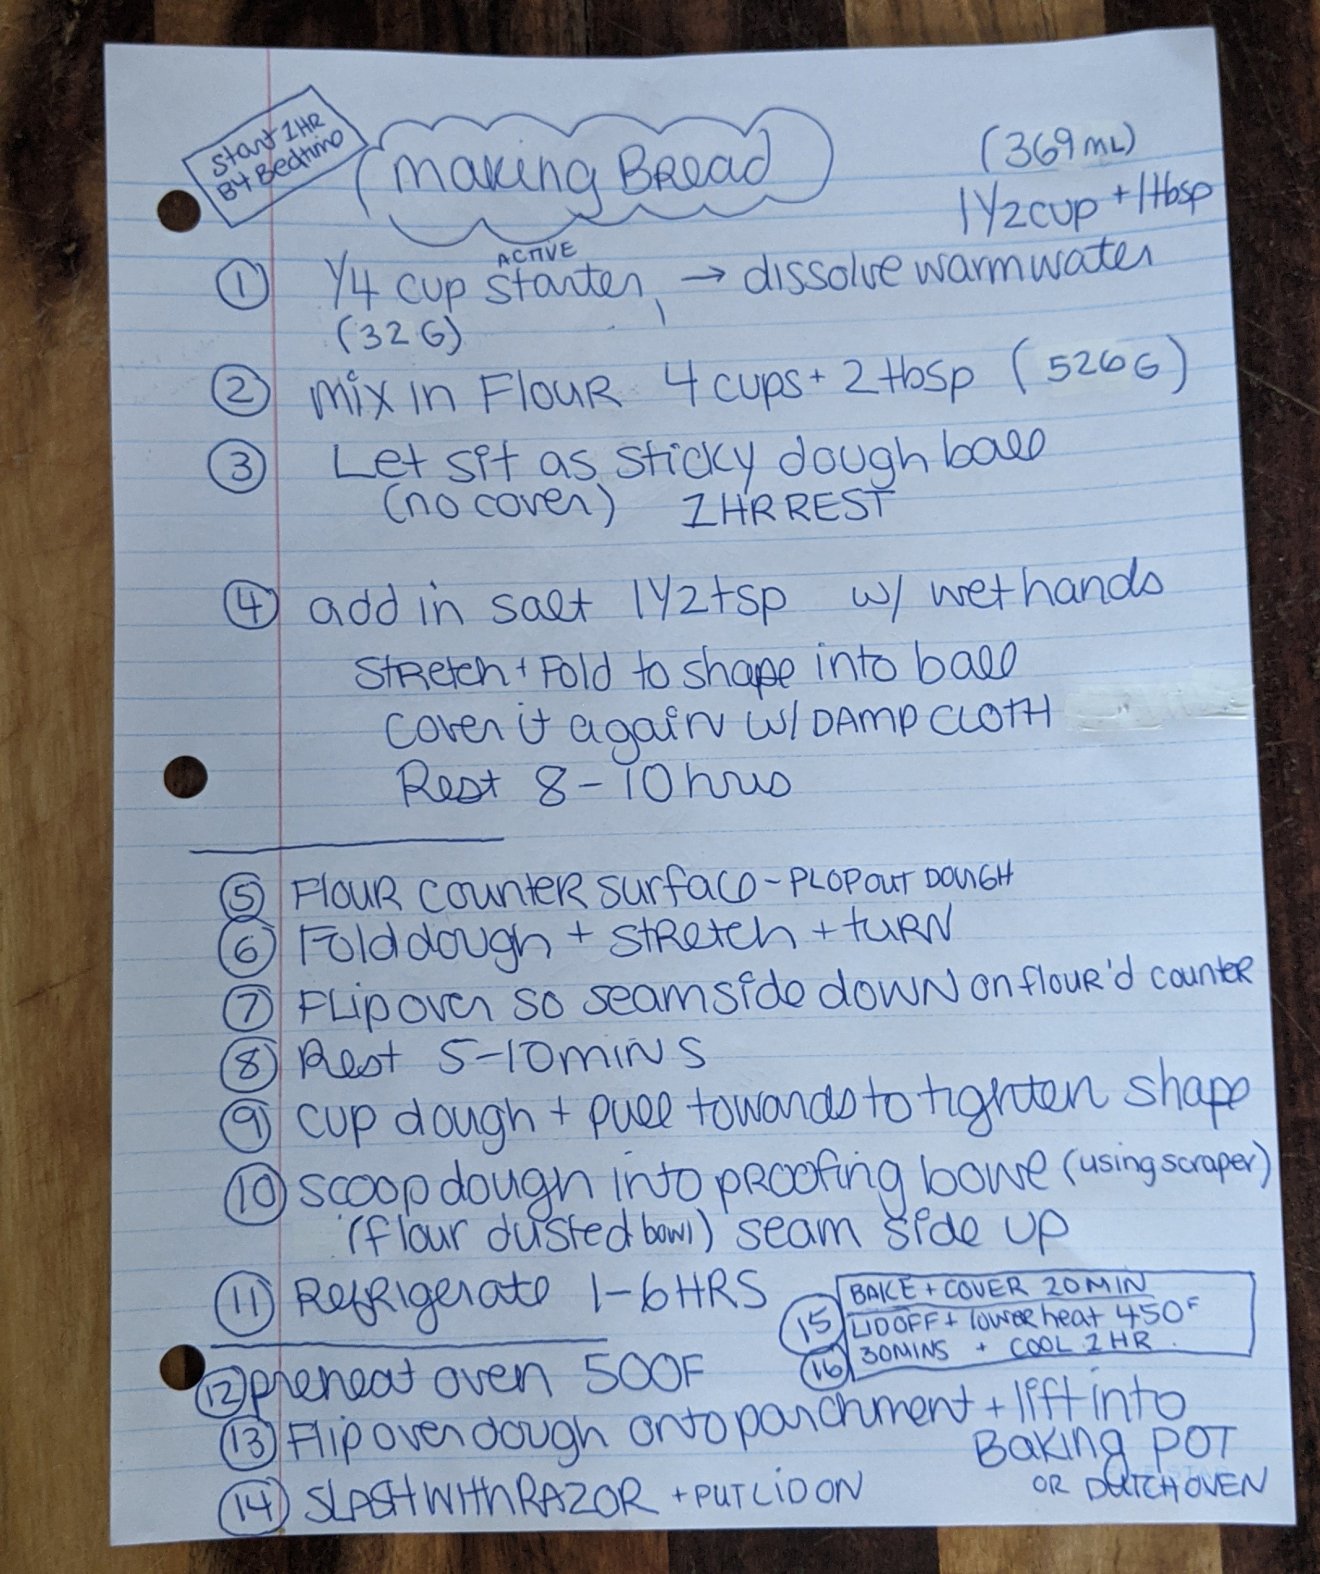 Start 1HR
B4 Bedtime
Making Bread
(369 mL)
1 1/2 cup + 1 tbsp
① 1/4 cup ACTIVE starter, → dissolve warm water
(32 G)
② mix in Flour 4 cups + 2 tbsp (526 G)
③ Let sit as sticky dough ball
(no cover) 1 HR REST
④ add in salt 1 1/2 tsp w/ wet hands
Stretch + Fold to shape into ball
Cover it again w/ DAMP CLOTH
Rest 8-10 hrs
⑤ Flour counter surface - PLOP OUT DOUGH
⑥ Fold dough + stretch + turn
⑦ Flip over so seam side down on flour'd counter
⑧ Rest 5-10 mins
⑨ cup dough + pull towards to tighten shape
⑩ scoop dough into proofing bowl (using scraper)
(flour dusted bowl) seam side up
⑪ Refrigerate 1-6 HRS
⑫ preheat oven 500F
⑬ Flip over dough onto parchment + lift into
Baking POT
OR DUTCH OVEN
⑭ SLASH WITH RAZOR + PUT LID ON
⑮ BAKE + COVER 20 MIN
LID OFF + lower heat 450F
⑯ 30 MINS + COOL 1 HR.